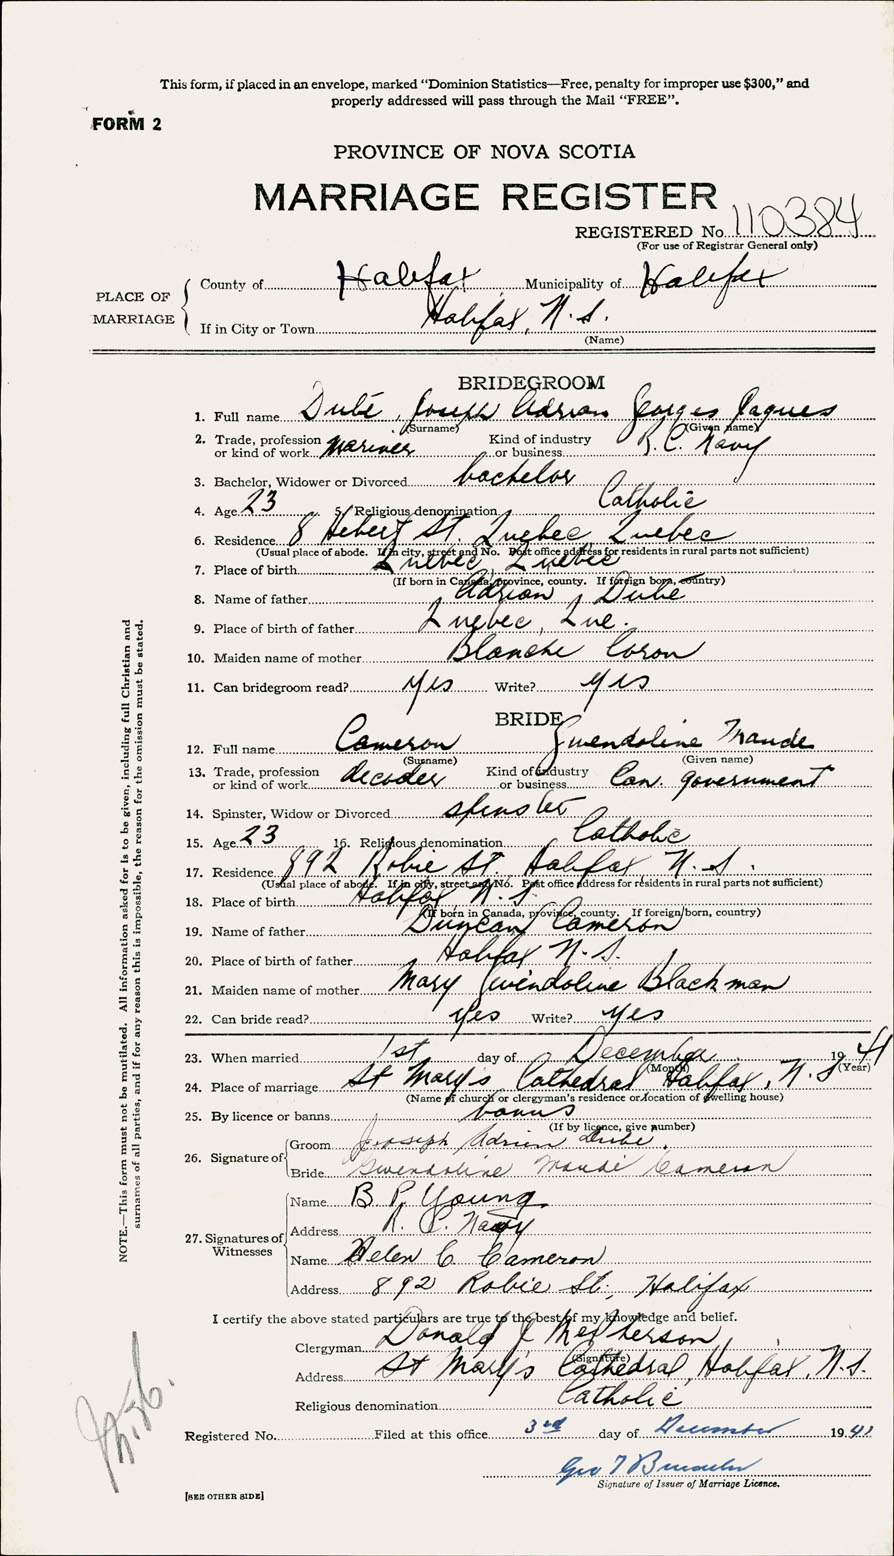 This form, if placed in an envelope, marked "Dominion Statistics—Free, penalty for improper use $300," and
properly addressed will pass through the Mail "FREE".
FORM 2
PROVINCE OF NOVA SCOTIA
MARRIAGE REGISTER
REGISTERED No. 110384
(For use of Registrar General only)
PLACE OF MARRIAGE
County of Halifax Municipality of Halifax
If in City or Town Halifax, N.S.
(Name)
BRIDEGROOM
1. Full name Dubé, Joseph Adrian Georges Jaques
(Surname) (Given name)
2. Trade, profession or kind of work Mariner Kind of industry or business R.C. Navy
3. Bachelor, Widower or Divorced bachelor
4. Age 23 5. Religious denomination Catholic
6. Residence 8 Hebert St. Quebec Quebec
(Usual place of abode. If in city, street and No. Post office address for residents in rural parts not sufficient)
7. Place of birth Quebec, Quebec
(If born in Canada, province, county. If foreign born, country)
8. Name of father Adrian Dubé
9. Place of birth of father Quebec, Que.
10. Maiden name of mother Blanche Coron
11. Can bridegroom read? Yes Write? Yes
BRIDE
12. Full name Cameron Gwendoline Maude
(Surname) (Given name)
13. Trade, profession or kind of work decoder Kind of industry or business Can. government
14. Spinster, Widow or Divorced spinster
15. Age 23 16. Religious denomination Catholic
17. Residence 892 Robie St. Halifax N.S.
(Usual place of abode. If in city, street and No. Post office address for residents in rural parts not sufficient)
18. Place of birth Halifax N.S.
(If born in Canada, province, county. If foreign born, country)
19. Name of father Duncan Cameron
20. Place of birth of father Halifax N.S.
21. Maiden name of mother Mary Gwendoline Blackman
22. Can bride read? Yes Write? Yes
23. When married 1st day of December 1941
(Month) (Year)
24. Place of marriage St Mary's Cathedral Halifax, N.S
(Name of church or clergyman's residence or location of dwelling house)
25. By licence or banns banns
(If by licence, give number)
26. Signature of Groom Joseph Adrien Dube.
Bride Gwendoline Maude Cameron
27. Signatures of Witnesses
Name B P Young
Address R. C. Navy
Name Helen C. Cameron
Address 892 Robie St., Halifax
I certify the above stated particulars are true to the best of my knowledge and belief.
Clergyman Donald J McPherson
(Signature)
Address St Mary's Cathedral, Halifax, N.S.
Religious denomination Catholic
Registered No. Filed at this office 3rd day of December 1941
Geo T
Signature of Issuer of Marriage Licence.
[SEE OTHER SIDE]
NOTE.—This form must not be mutilated. All information asked for is to be given, including full Christian and
surnames of all parties, and if for any reason this is impossible, the reason for the omission must be stated.